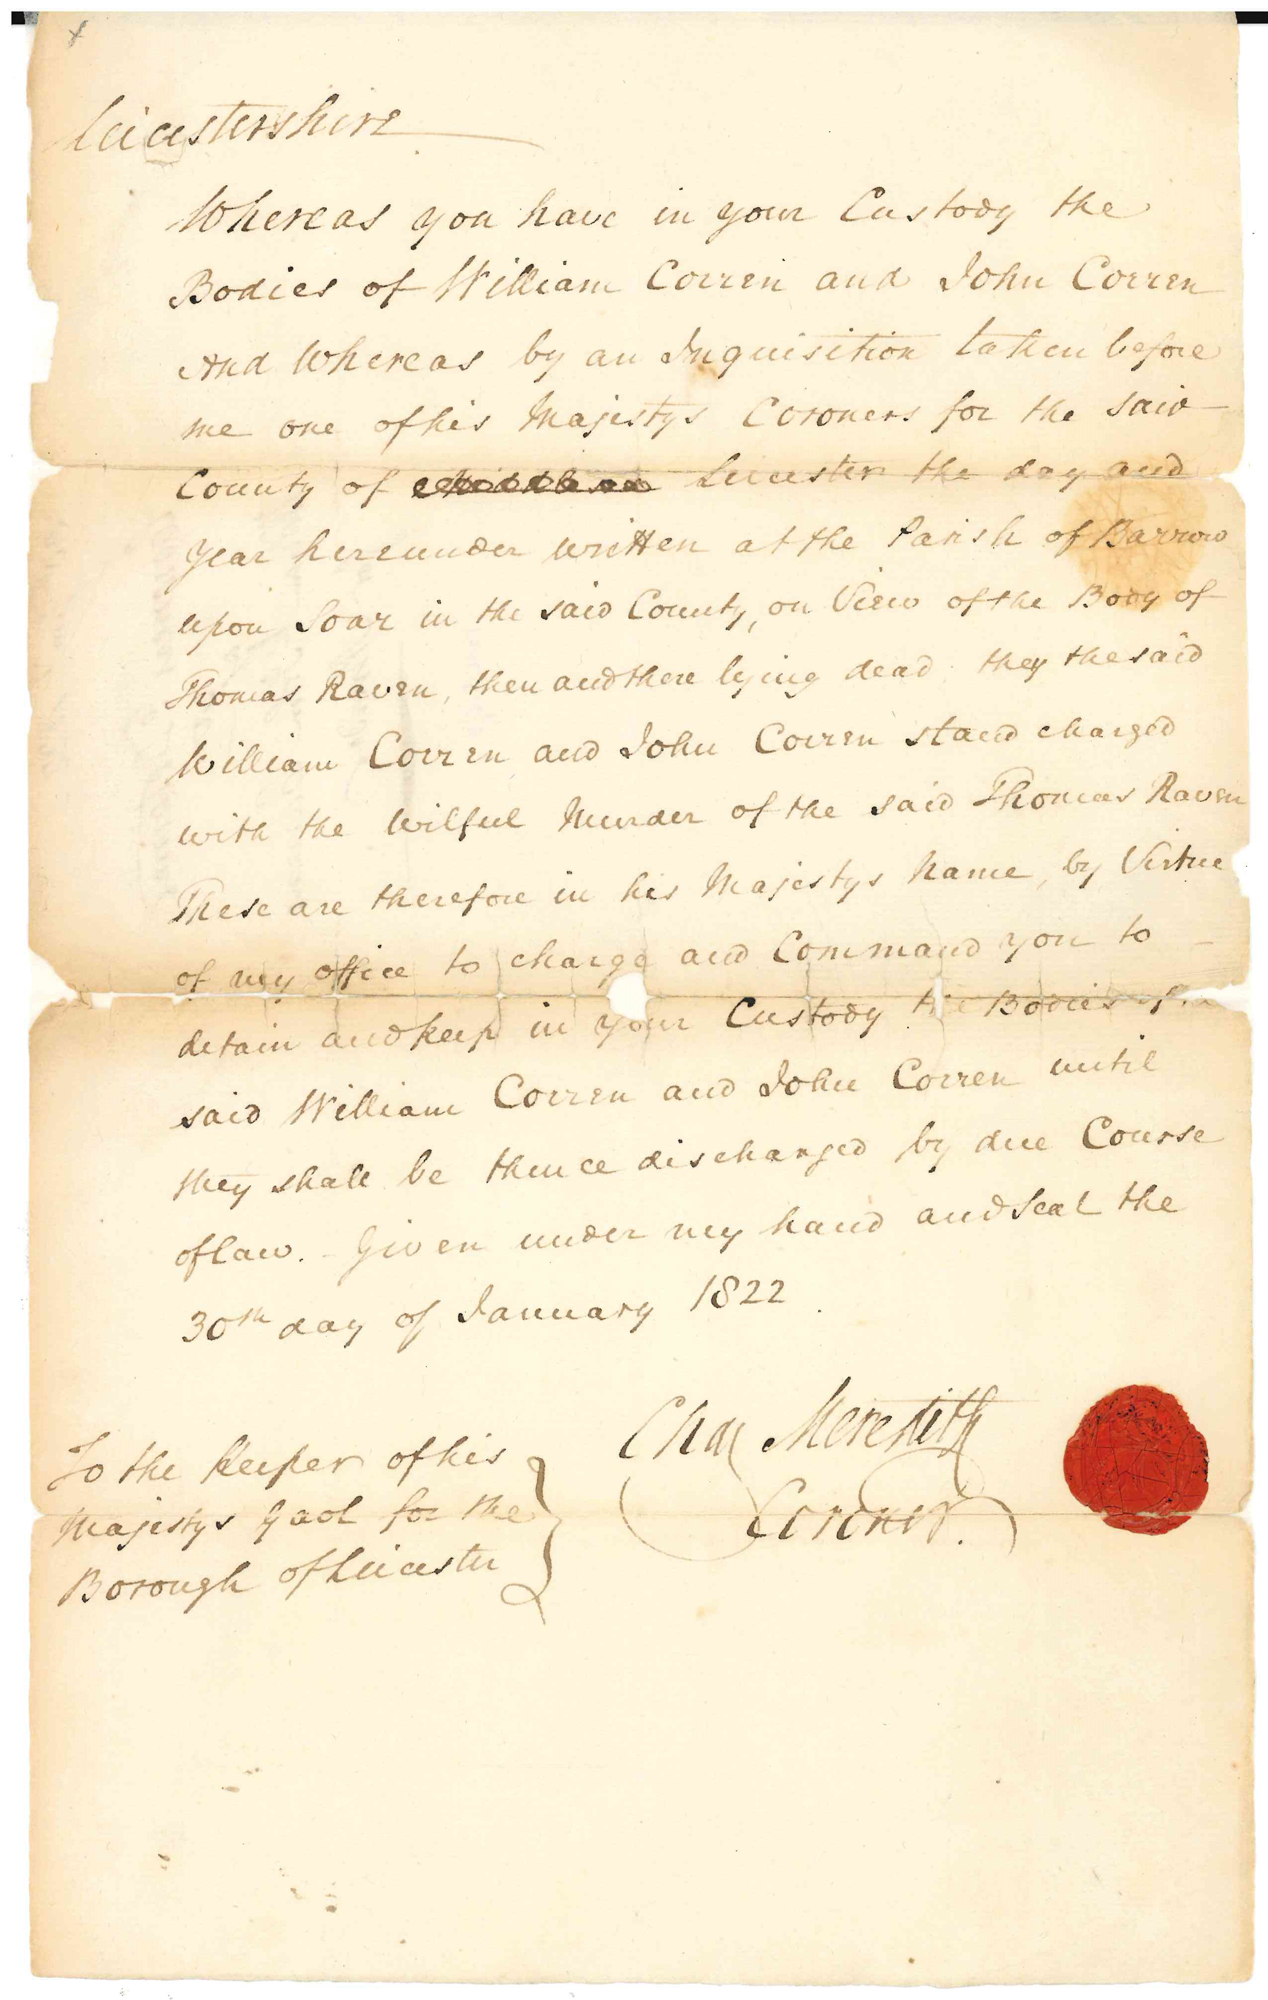 Leicestershire
Whereas you have in your Custody the
Bodies of William Corren and John Corren
And Whereas by an Inquisition taken before
me one of his Majestys Coroners for the said
County of Middlesex Leicester the day and
year hereunder written at the Parish of Barrow
upon Soar in the said County, on View of the Body of
Thomas Raven, then and there lying dead, they the said
William Corren and John Corren stand charged
with the Wilful Murder of the said Thomas Raven
These are therefore in his Majestys Name, by Virtue
of my office to charge and Command you to
detain and keep in your Custody the Bodies of
said William Corren and John Corren until
they shall be thence discharged by due Course
of law. Given under my hand and Seal the
30th day of January 1822.
Chas Meredith
Coroner.
To the Keeper of his
Majestys Gaol for the
Borough of Leicester